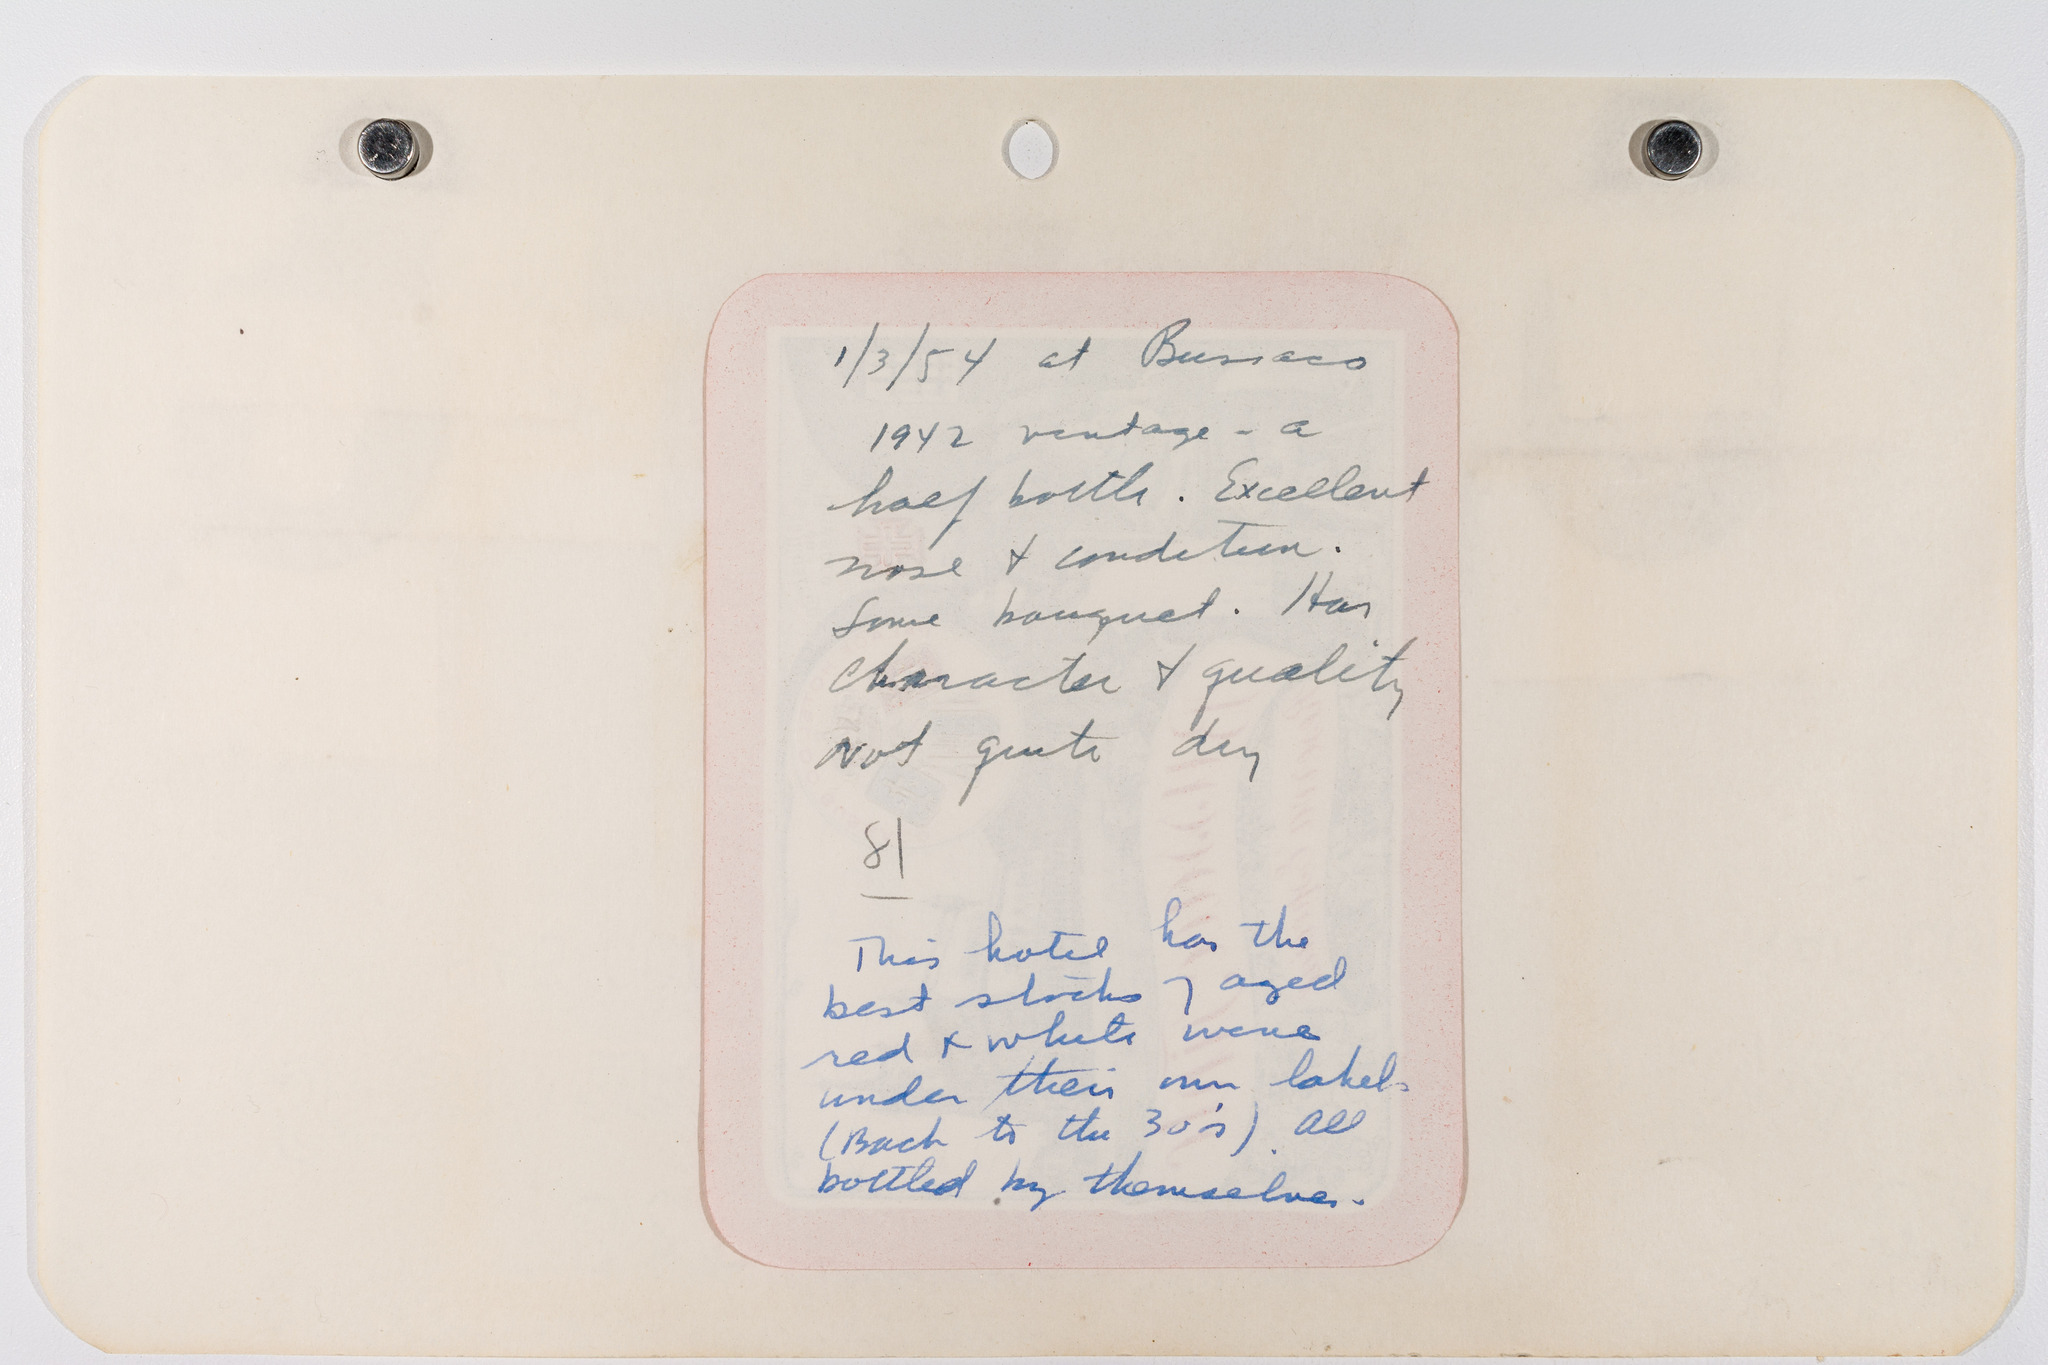 1/3/54 at Bussaco
1942 vintage - a
half bottle. Excellent
nose & condition.
Some bouquet. Has
character & quality
Not quite dry
81
This hotel has the
best stocks of aged
red & white wine
under their own labels
(Back to the 30's). All
bottled by themselves.